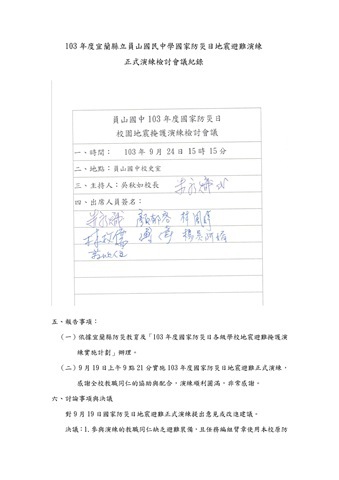 103 年度宜蘭縣立員山國民中學國家防災日地震避難演練
正式演練檢討會議紀錄
員山國中 103 年度國家防災日
校園地震掩護演練檢討會議
一、時間： 103 年 9 月 24 日 15 時 15 分
二、地點：員山國中校史室
三、主持人：吳秋如校長
四、出席人員簽名：
五、報告事項：
（一）依據宜蘭縣防災教育及「103 年度國家防災日各級學校地震避難掩護演
練實施計劃」辦理。
（二）9 月 19 日上午 9 點 21 分實施 103 年度國家防災日地震避難正式演練，
感謝全校教職同仁的協助與配合，演練順利圓滿，非常感謝。
六、討論事項與決議
對 9 月 19 日國家防災日地震避難正式演練提出意見或改進建議。
決議：1.參與演練的教職同仁缺乏避難裝備，且任務編組臂章使用本校原防